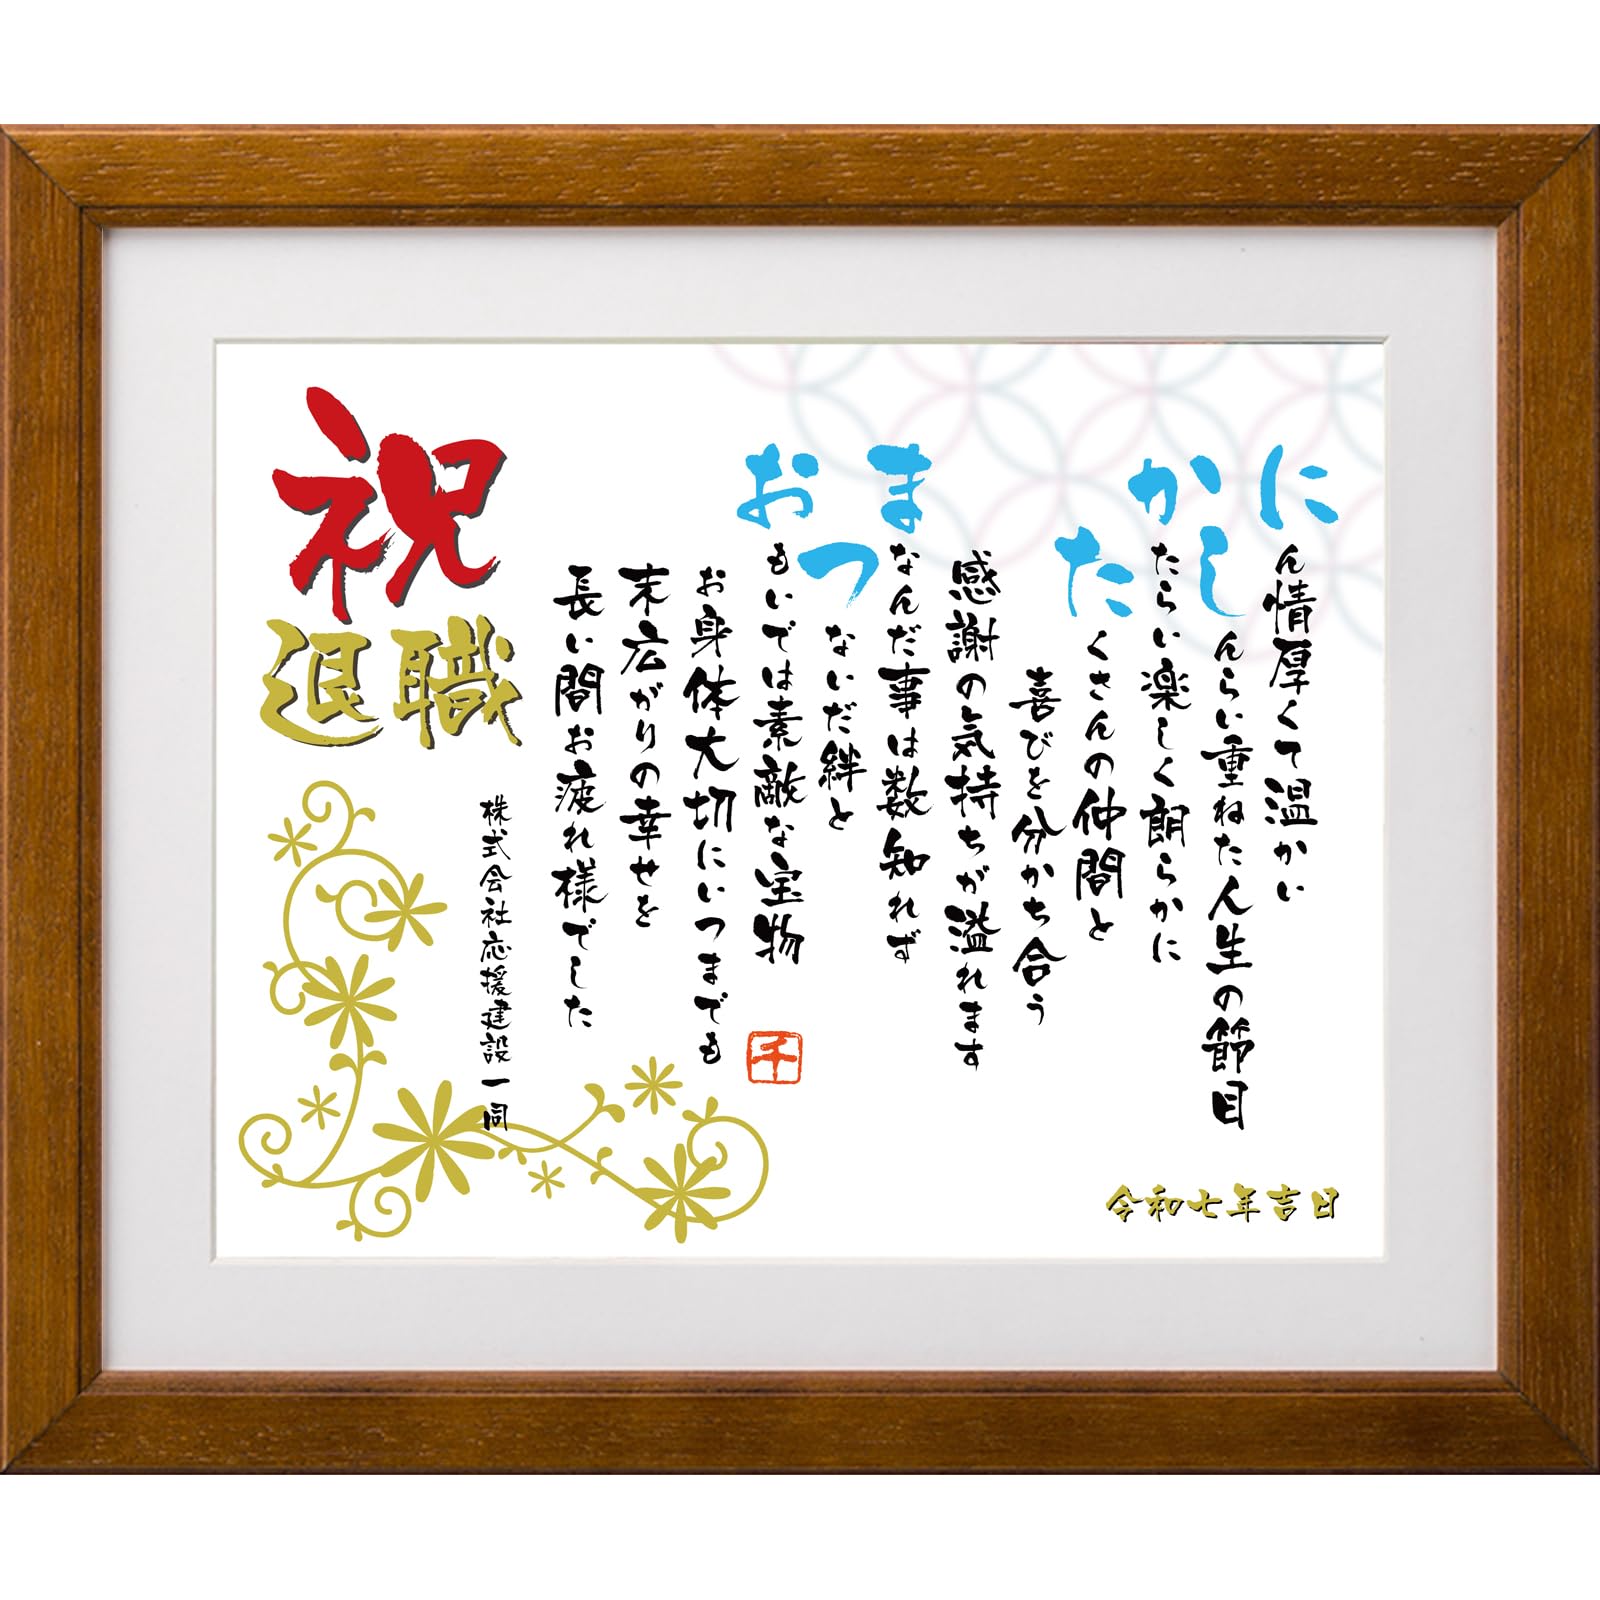 にん情厚くて温かい
しんらい重ねた人生の節目
かたらい楽しく朗らかに
たくさんの仲間と
喜びを分かち合う
感謝の気持ちが溢れます
まなんだ事は数知れず
つないだ絆と
おもいでは素敵な宝物
お身体大切にいつまでも
末広がりの幸せを
長い間お疲れ様でした
千
祝
退職
株式会社応援建設一同
令和七年吉日